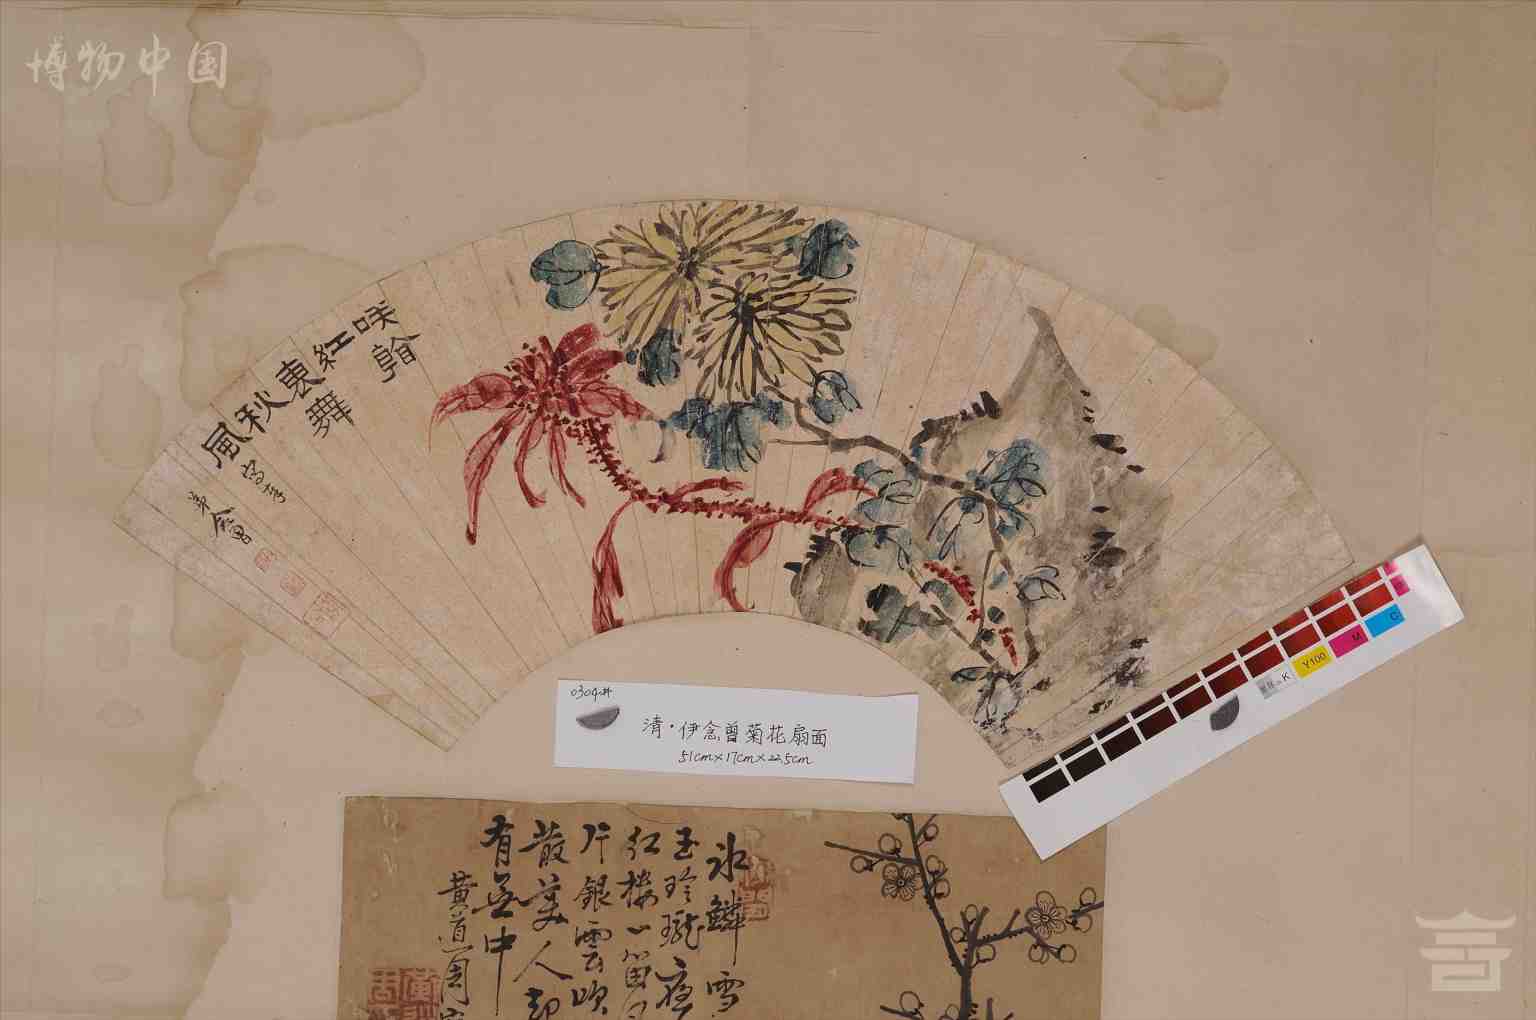 博物中国
咲翰
红舞
东秋
风
弟念曾
0304#
清·伊念曾菊花扇面
51cm×17cm×22.5cm
K
Y100
M
C
冰鳞雪
玉玲珑夜
红楼一笛
片银云吹
散美人却
有无中
黄道周